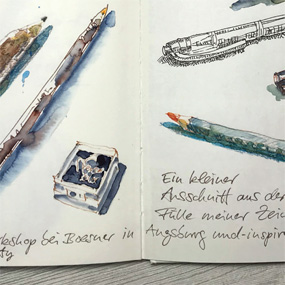 Ein kleiner
Ausschnitt aus der
Fülle meiner
bei Boesner in
Augsburg und